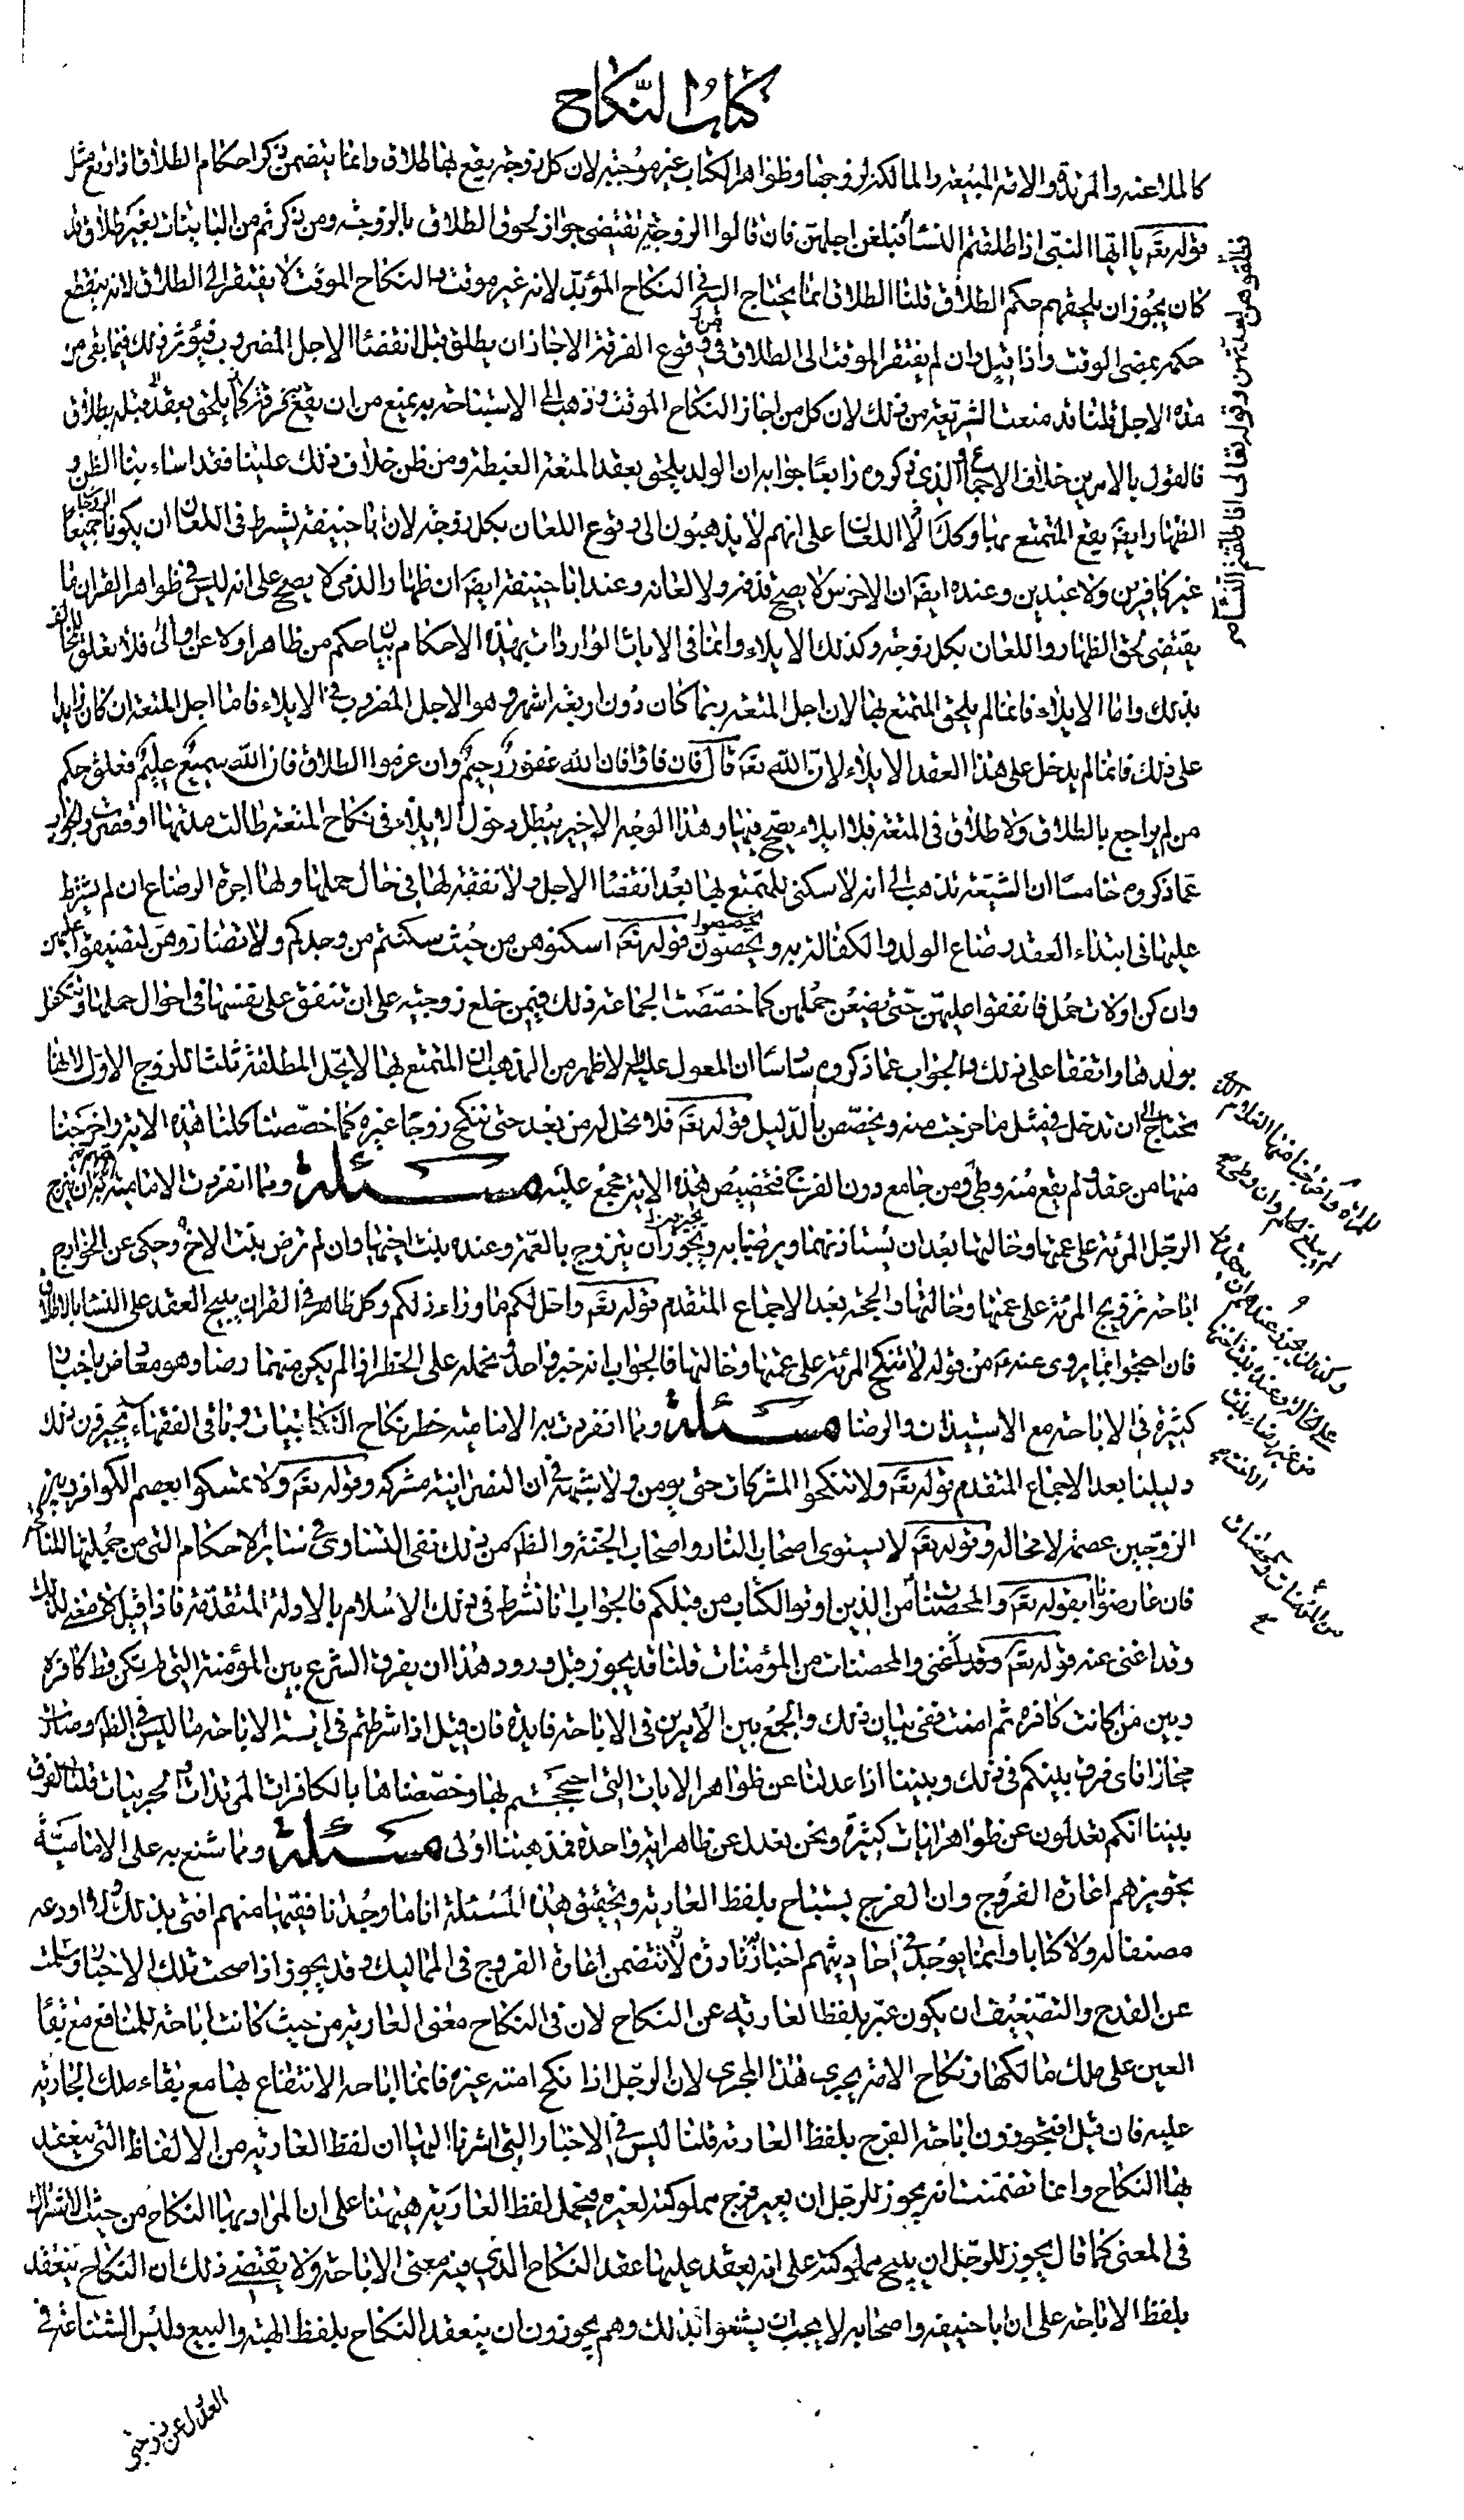 كتاب النكاح
كالملاعنه والمرتدة والامة المبيعه والمالكة لزوجها وظواهر الكتاب غير موجبة لان كل زوجة يقع بها طلاق وانما يتضمن ذكر احكام الطلاق اذا وقع مثل
قوله تعه يا ايها النبى اذا طلقتم النساء فبلغن اجلهن فان قالوا الزوجية تقتضى جواز لحوق الطلاق بالزوجه ومن ذكرتم من البائنات بغير طلاق قد
كان يجوز ان يلحقهم حكم الطلاق قلنا الطلاق انما يحتاج اليه فى النكاح المؤبد لانه غير موقت والنكاح الموقت لا يفتقر الى الطلاق لانه ينقطع
حكمه بمضى الوقت واذا قيل وان لم يفتقر الموقت الى الطلاق فى وقوع الفرقة الا جاز ان يطلق قبل انقضاء الاجل المضروب فيؤثر ذلك فيما بقى من
مدة الاجل قلنا قد منعت الشريعة من ذلك لان كل من اجاز النكاح الموقت وذهب الى الاستباحة به يمنع من ان يقع فرقة قبله بطلاق
فالقول بالامرين خلاف الاجماع والذى ذكروه رابعا جوابه ان الولد يلحق بعقد المتعة ومن ظن خلاف ذلك علينا فقد اساء بنا الظن و
الظهار ايضه يقع المتمتع بها وكذلك اللعان على انهم لا يذهبون الى وقوع اللعان بكل زوجة لان ابا حنيفة يشرط فى اللعان ان يكونا جميعا
غير كافرين ولا عبدين وعنده ايضه ان الاخرس لا يصح قذفه ولا لعانه وعند ابا حنيفة ايضه ان ظهار الذمى لا يصح على انه ليس فى ظواهر القران ما
يقتضى لحوق الظهار واللعان بكل زوجة وكذلك الايلاء وانما فى الايات الواردات بهذه الاحكام بيان حكم من ظاهر او لاعن او الى فلا تعلق للمخالف
بذلك واما الايلاء فانما لم يلحق المتمتع بها لان اجل المتعه ربما كان دون اربعة اشهر وهو الاجل المضروب فى الايلاء فاما اجل المتعه ان كان زايدا
على ذلك فانما لم يدخل على هذا العقد الايلاء لان الله تعه قال فان فاؤا فان الله غفور رحيم وان عزموا الطلاق فان الله سميع عليم فعلق حكم
من لم يراجع بالطلاق ولا طلاق فى المتعه فلا ايلاء يصح فيها وهذا الوجه الاخير يبطل دخول الايلاء فى نكاح المتعه طالت مدتها او قصرت والجواب
عما ذكروه خامسا ان الشيعه تذهب الى انه لا سكنى للمتمتع بها بعد انقضاء الاجل ولا نفقة لها فى حال حملها ولها اجرة الرضاع ان لم يشرط
عليها فى ابتداء العقد رضاع الولد والكفالة به ويخصون قوله تعه اسكنوهن من حيث سكنتم من وجدكم ولا تضاروهن لتضيقوا عليهن
وان كن اولات حمل فانفقوا عليهن حتى يضعن حملهن كما خصصت الجماعة ذلك فيمن خلع زوجته على ان تنفق على نفسها فى احوال حملها وتتكفل
بولدها واتفقا على ذلك والجواب عما ذكروه سادسا ان المعول عليه والاظهر من المذهب ان المتمتع بها لا يحل المطلقة ثلثا للزوج الاول لانها
تحتاج الى ان تدخل فى مثل ما خرجت منه ويخصص بالدليل قوله تعه فلا تحل له من بعد حتى تنكح زوجا غيره كما خصصنا كلنا هذه الاية واخرجنا
منها من عقد ولم يقع منه وطى ومن جامع دون الفرج فتخصيص هذه الاية مجمع عليه مسئلة ومما انفردت الامامية به ان يتزوج
الرجل المرئة على عمتها وخالتها بعد ان يستاذنهما ويرضيا به ويجوز ان يتزوج بالعمة وعنده بنت اخيها وان لم ترض بنت الاخ وحكى عن الخوارج
اباحة تزويج المرئة على عمتها وخالتها والحجة بعد الاجماع المتقدم قوله تعه واحل لكم ما وراء ذلكم وكل ظاهر فى القران يبيح العقد على النساء بالاطلاق
فان احتجوا بما يروى عنه عه من قوله لا تنكح المرئة على عمتها وخالتها فالجواب انه خبر واحد ونحمله على الحظر اذا لم يكن منهما رضا وهو معارض باخبار
كثيرة فى الاباحة مع الاستيذان والرضا مسئلة ومما انفردت به الامامية حظر نكاح الكتابيات وباقى الفقهاء يجيزون ذلك
دليلنا بعد الاجماع المتقدم قوله تعه ولا تنكحوا المشركات حتى يومن ولا شبهة فى ان النصرانية مشركه وقوله تعه ولا تمسكوا بعصم الكوافر وبين
الزوجين عصمة لا محاله وقوله تعه لا يستوى اصحاب النار واصحاب الجنة والظاهر من ذلك نفى التساوى فى سائر الاحكام التى من جملتها المناكحة
فان عارضوا بقوله تعه والمحصنات من الذين اوتوا الكتاب من قبلكم فالجواب انا نشرط فى ذلك الاسلام بالادلة المتقدمة فاذا قيل لا معنى لذلك
وقد اغنى عنه قوله تعه والمحصنات من المؤمنات قلنا قد يجوز قبل ورود هذا ان يفرق الشرع بين المؤمنة التى لم تكن قط كافرة
وبين من كانت كافرة ثم امنت ففى بيان ذلك والجمع بين الامرين فى الاباحة فايدة فان قيل اذا شرطتم فى اية الاباحة ما ليس فى الظاهر وصارت
مجازا فاى فرق بينكم فى ذلك وبيننا اذا عدلنا عن ظواهر الايات التى احتججتم بها وخصصناها بالكافرات المرتدات والحربيات قلنا الفرق
بيننا انكم تعدلون عن ظواهر ايات كثيرة ونحن نعدل عن ظاهر اية واحدة فمذهبنا اولى مسئلة ومما شنع به على الامامية
تجويزهم اعارة الفروج وان الفرج يستباح بلفظ العارية وتحقيق هذه المسئلة انا ما وجدنا فقيها منهم افتى بذلك ولا اودعه
مصنفا له ولا كتابا وانما يوجد فى احاديثهم اخبار نادرة تتضمن اعارة الفروج فى المماليك وقد يجوز اذا صحت تلك الاخبار وسلمت
عن القدح والتضعيف ان يكون عبر بلفظ العارية عن النكاح لان فى النكاح معنى العارية من حيث كانت اباحة للمنافع مع بقاء
العين على ملك مالكها ونكاح الامة يجرى هذا المجرى لان الرجل اذا نكح امته غيره فانما اباحه الانتفاع بها مع بقاء ملك الجارية
عليه فان قيل افتجوزون اباحة الفرج بلفظ العارية قلنا ليس فى الاخبار التى اشرنا اليها ان لفظ العارية من الالفاظ التى ينعقد
بها النكاح وانما تضمنت انه يجوز للرجل ان يعير فرج مملوكته لغيره فيحمل لفظ العارية هيهنا على ان المراد بها النكاح من حيث الاشتراك
فى المعنى كما قال يجوز للرجل ان يبيح مملوكته على انه يعقد عليها عقد النكاح الذى فيه معنى الاباحة ولا يقتضى ذلك ان النكاح ينعقد
بلفظ الاباحة على ان ابا حنيفة واصحابه لا يجب ان يشنعوا بذلك وهم يجوزون ان ينعقد النكاح بلفظ الهبة والبيع وليس الشناعة فى
العدول عن زوجنى